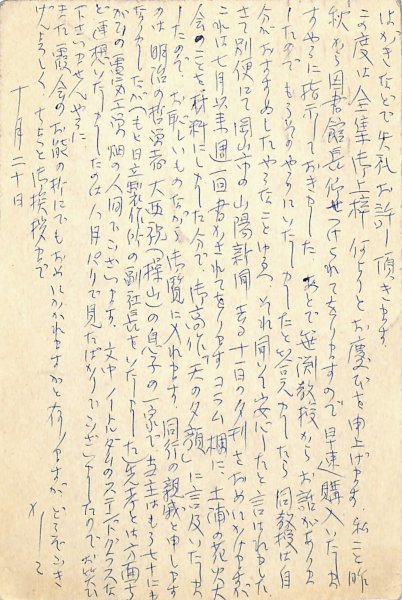 はがきなどで失礼お許し頂きます
この度は全集御上梓 何よりとお慶び申上げます 私こと昨
秋から図書館長仰せつけられておりますので早速購入いたしま
すやうに指示しておきました。あとで笹淵教授からお話がありま
したので もうそのやうにいたしましたと答えましたら 同教授は自
分がおすすめしたやうなことゆゑ、それ聞いて安心したと言はれました
さて別便にて岡山市の山陽新聞 去る十一日の夕刊をおめにかけますが
これは七月以来週一回書かされてをりますコラム欄に、土浦の花火大
会のことを材料にしました分で、御高作「天の夕顔」に言及いたしま
したので、お恥しいものながら御覧に入れます。同行の親戚と申します
のは明治の哲学者大西祝(操山)の息子の一家で 当主はもう七十にも
なりましたがもと日立製作所の副社長をいたしました 先考とは方面ち
がひの電気工学畑の人間でございます。文中ノートルダムのステンドグラスな
ど連想いたしましたのは八月パリで見たばかりでございましたのでお笑ひ
下さいませんやうに
また 会のお能の折にでもおめにかかれますかと存じますが どうぞごき
げんよろしく ちょっと御挨拶まで
十月二十日